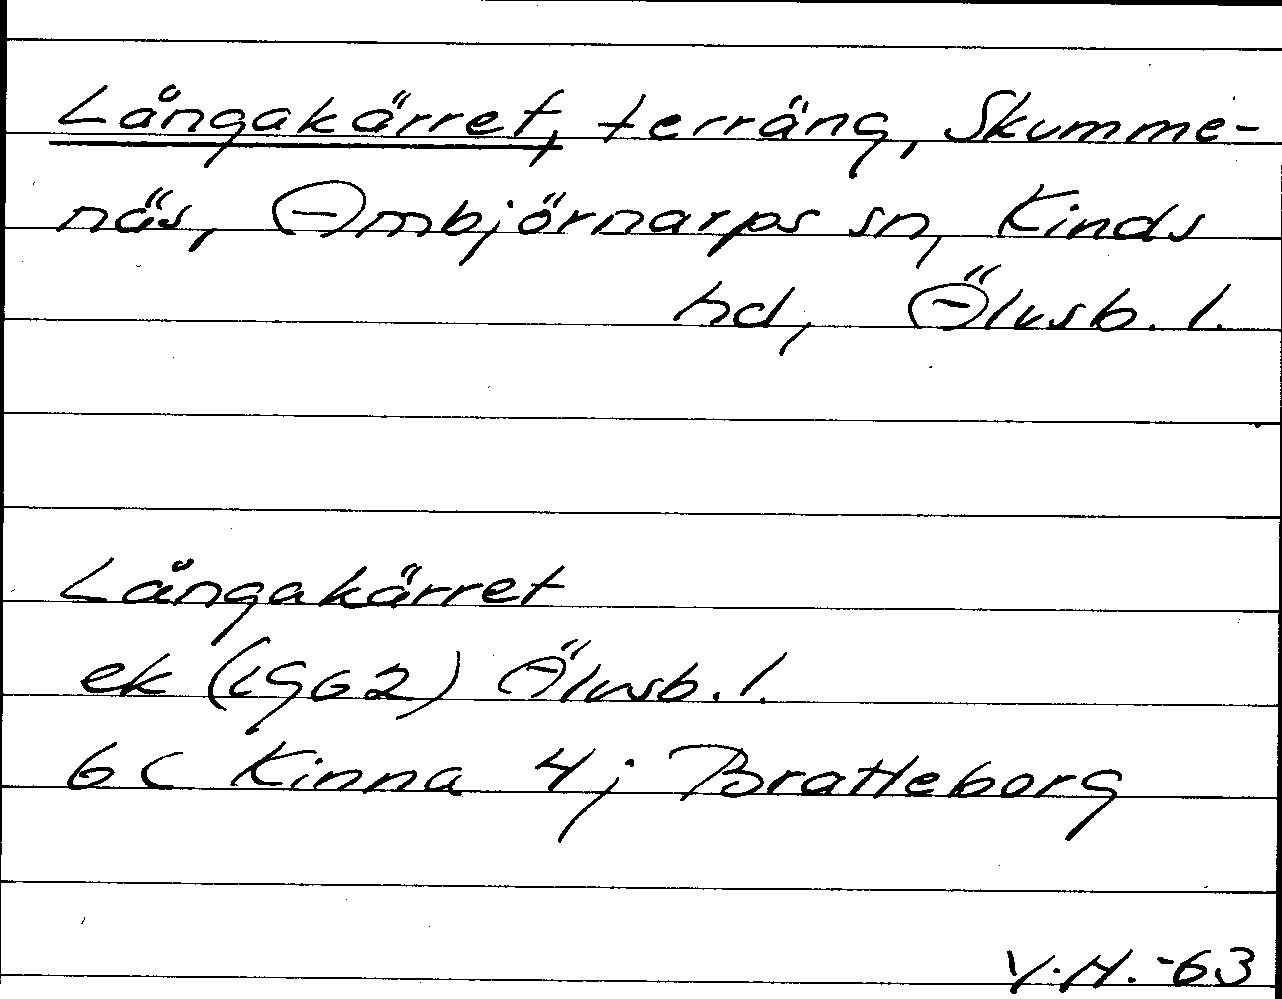 Långakärret, terräng, Skumme-
näs, Ambjörnarps sn, Kinds
hd, Älvsb. l.
Långakärret
ek (1962) Älvsb. l.
6C Kinna 4j Bratteborg
V.H. -63